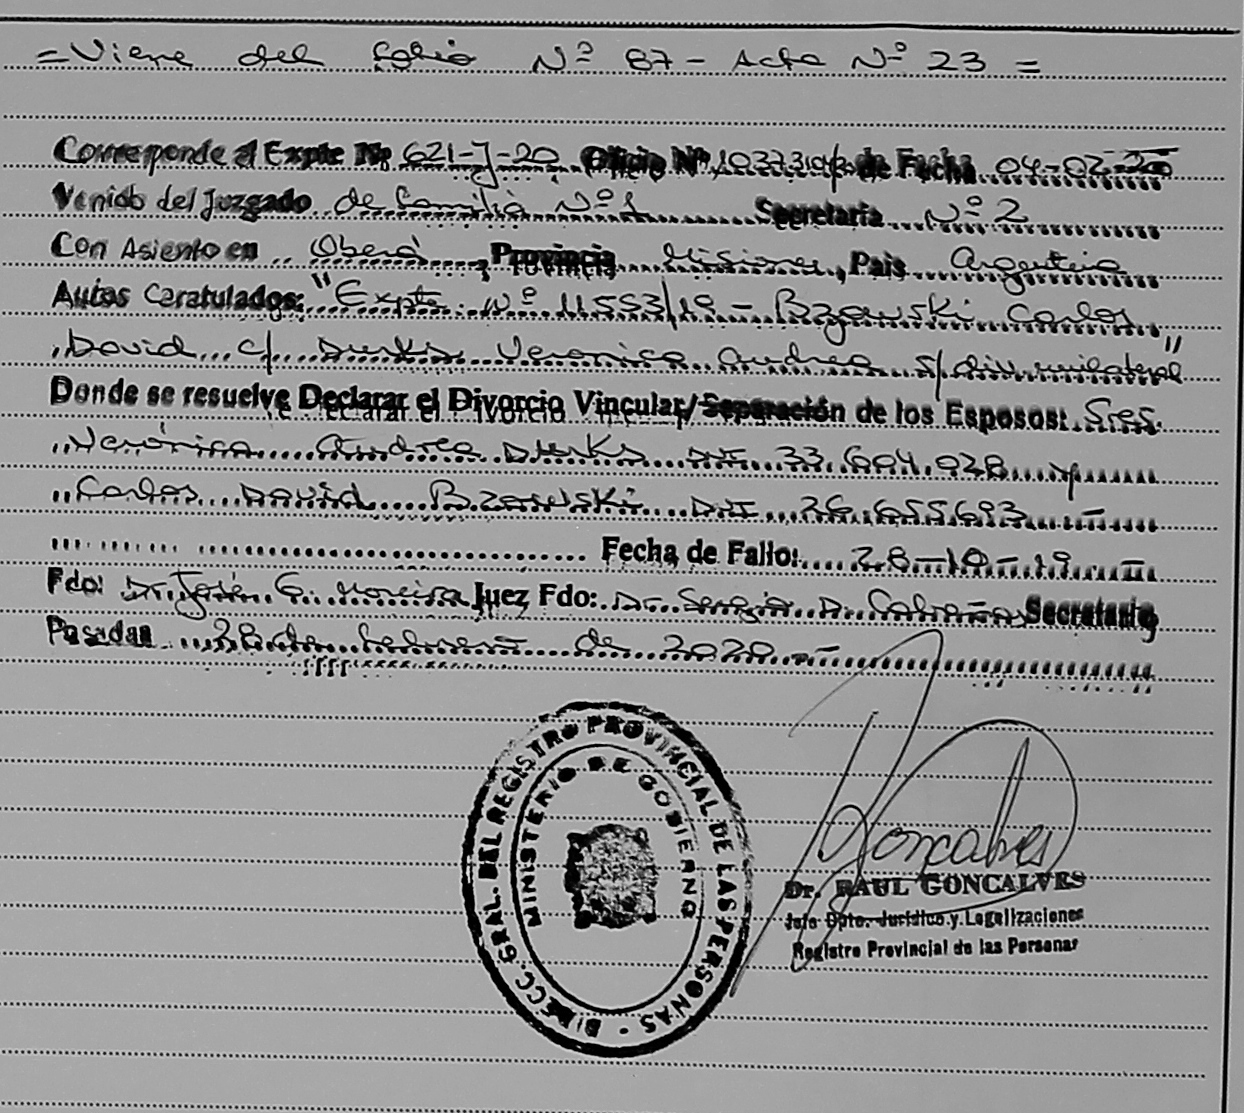 = Viene del folio Nº 87 - Acta Nº 23 =
Corresponde al Expte Nº 621-J-20 Oficio Nº de Fecha 04-02-20
Venido del Juzgado de Familia Nº 1 Secretaria Nº 2
Con Asiento en Oberá, Provincia Misiones, Pais Argentina
Autos Caratulados: "Expte. Nº 11553/19 - Bzowski Carlos
David c/ Verónica Andrea s/ div. unilateral"
Donde se resuelve Declarar el Divorcio Vincular/Separación de los Esposos: Sres.
Verónica Andrea DNI 33.604.928 y
Carlos David Bzowski DNI 26.655.693 -
Fecha de Fallo: 28-10-19 =
Fdo: Dr. José G. Moreira Juez Fdo: Dr. Sergio D. Secretario
Posadas 28 de febrero de 2020.-
DIRECC. GRAL. DEL REGISTRO PROVINCIAL DE LAS PERSONAS -
MINISTERIO DE GOBIERNO
Goncalves
Dr. RAUL GONCALVES
Jefe Dpto. Jurídico y Legalizaciones
Registro Provincial de las Personas